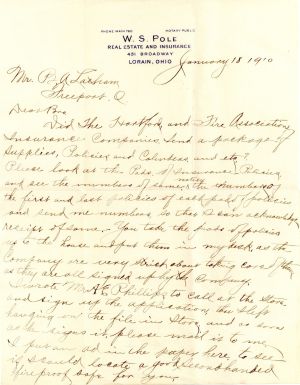 PHONE MAIN 780 NOTARY PUBLIC
W. S. POLE
REAL ESTATE AND INSURANCE
431 BROADWAY
LORAIN, OHIO
January 18 1910
Mr. B. A.
Freeport, O
Dear
Did The Hartford and Fire Association
Insurance Companies send a package of
Supplies, Policies and Calendars, and etc?
Please look at the Pads of Insurance Policies
and see the numbers of same, the numbers of
the first and last policies of each pad of policies
and send me numbers, so that I can acknowledge
receipt of same. You take the pads of policies
up to the house and put them in my desk, as the
Company are very strict about taking care of them
as they are all signed up by the Company.
I wrote Mr. Phillips to call at the Store
and sign up the application, that I left
hanging on the file in Store and as soon
as he signs it, please mail it to me.
I put an ad in the paper here, to see
if I could locate a good second handed
fire proof safe for you.